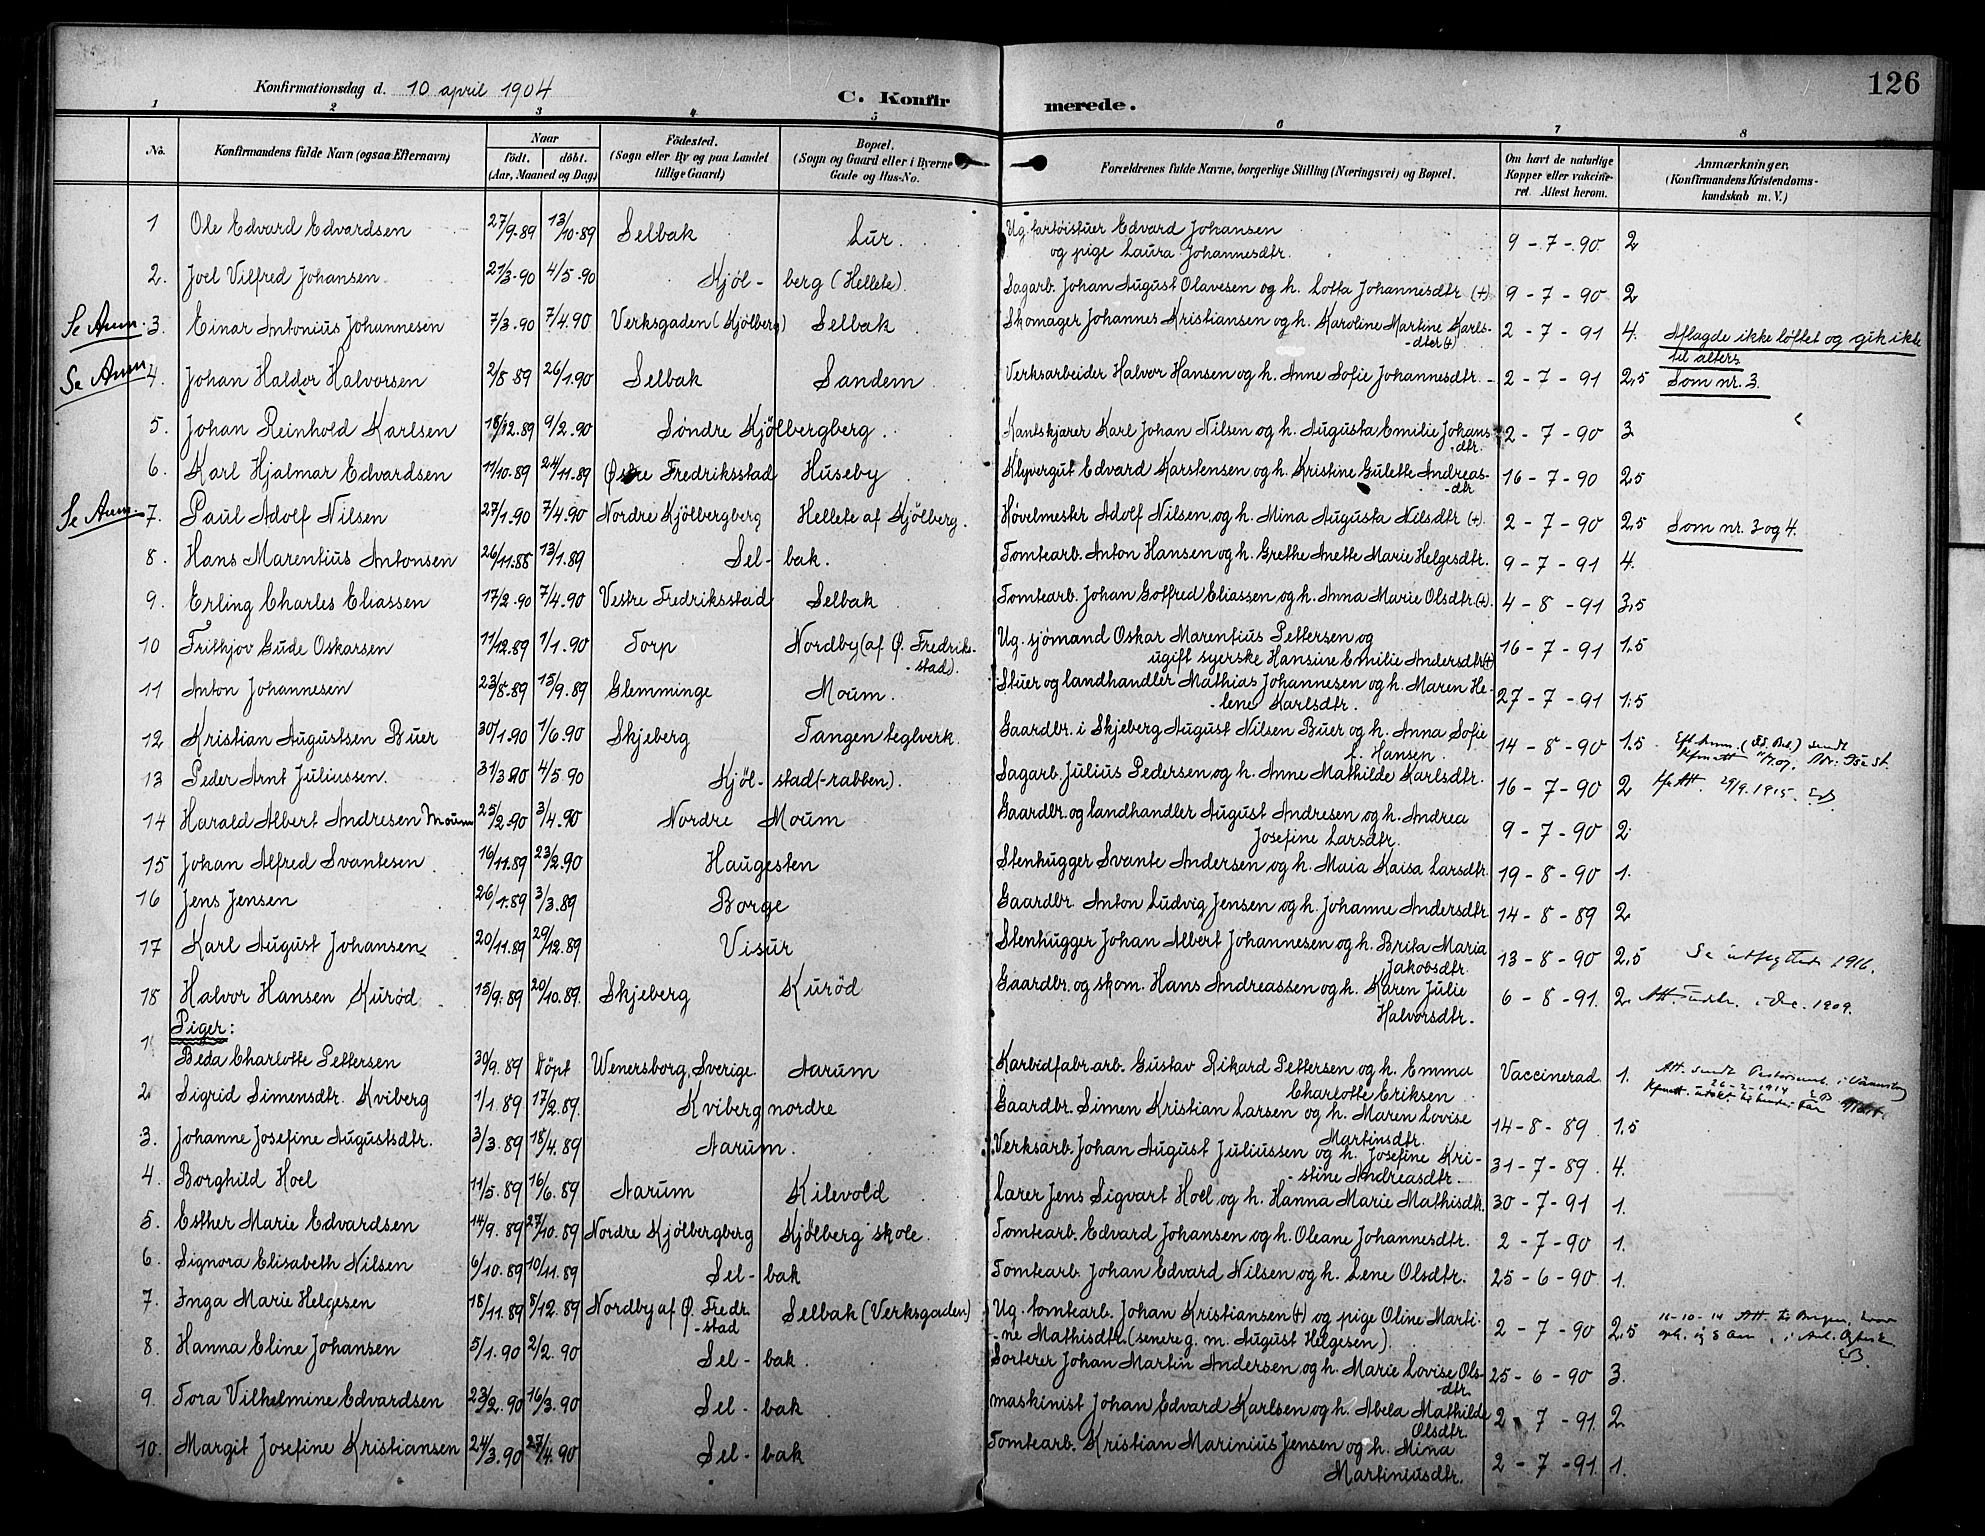 126
Konfirmationsdag d. 10 april 1904
C. Konfirmerede.
1 2 3 4 5 6 7 8
No. Konfirmandens fulde Navn (ogsaa Efternavn) Naar födt. döbt. (Aar, Maaned og Dag) Födested. (Sogn eller By og paa Landet tillige Gaard) Bopæl. (Sogn og Gaard eller i Byerne Gade og Hus-No. Forældrenes fulde Navne, borgerlige Stilling (Næringsvei) og Bopæl. Om havt de naturlige Kopper eller vakcineret. Attest herom. Anmærkninger. (Konfirmandens Kristendomskundskab m. V.)
1 Ole Edvard Edvardsen 27/9.89 13/10.89 Selbak Lur. Ug. fartøistuer Edvard Johansen og pige Laura Johannesdtr. 9-7-90 2
2. Joel Vilfred Johansen 21/3.90 4/5.90 Kjöl-berg (Hellete). Sagarb. Johan August Olavesen og h. Lotta Johannesdtr (+) 9-7-90 2
Se Anm. 3. Einar Antonius Johannesen 7/3.90 7/4.90 Verksgaden (Kjölberg) Selbak Skomager Johannes Kristiansen og h. Karoline Martine Karls-dter (+) 2-7-91 4. Aflagde ikke løftet og gik ikke til alters
Se Anm 4. Johan Haldor Halvorsen 2/8.89 26/1.90 Selbak Sandem Verksarbeider Halvor Hansen og h. Anne Sofie Johannesdtr. 2-7-91 2,5 Som nr. 3.
5. Johan Reinhold Karlsen 18/12.89 9/2.90 Søndre Kjölbergberg. Kantskjærer Karl Johan Nilsen og h. Augusta Emilie Johans-dtr. 2-7-90 3
6. Karl Hjalmar Edvardsen 11/10.89 24/11.89 Østre Fredriksstad Huseby Klyvergut Edvard Karstensen og h. Kristine Gulette Andreas-dtr 16-7-90 2,5
Se Anm. 7. Paul Adolf Nilsen 27/1.90 7/4.90 Nordre Kjölbergberg Hellete af Kjölberg. Høvelmester Adolf Nilsen og h. Mina Augusta Nilsdtr (+). 2-7-90 2,5 Som nr. 3 og 4.
8. Hans Marentius Antonsen 26/11.88 13/1.89 Sel-bak. Tomtearb. Anton Hansen og h. Grethe Anette Marie Helgesdtr. 9-7-91 4.
9. Erling Charles Eliassen 17/2.90 7/4.90 Vestre Fredriksstad Selbak Tomtearb. Johan Gotfred Eliassen og h. Anna Marie Olsdtr.(+). 4-8-91 3,5
10 Frithjov Gude Oskarsen 11/12.89 1/1.90 Torp Nordby (af Ø. Fredrik-stad). Ug. sjömand Oskar Marentius Pettersen og ugift syerske Hansine Emilie Andersdtr (+) 16-7-91 1,5
11 Anton Johannesen 23/8.89 15/9.89 Glemminge Moum. Stuer og landhandler Mathias Johannesen og h. Maren He-lene Karlsdtr. 27-7-91 1,5
12 Kristian Augustsen Buer 30/1.90 1/6.90 Skjeberg Tangen teglverk. Gaardbr. i Skjeberg August Nilsen Buer og h. Anna Sofie L. Hansen. 14-8-90 1,5
13 Peder Arnt Juliussen. 31/3.90 4/5.90 Kjöl-stad(-rabben). Sagarb. Julius Pedersen og h. Anne Mathilde Karlsdtr. 16-7-90 2 Att. 29/9.1915.
14 Harald Albert Andresen Moum 25/2.90 3/4.90 Nordre Moum Gaardbr. og landhandler August Andresen og h. Andrea Josefine Larsdtr. 9-7-90 2.
15 Johan Alfred Svantesen 16/11.89 23/2.90 Haugesten Stenhugger Svante Andersen og h. Maia Kaisa Larsdtr. 19-8-90 1.
16 Jens Jensen 26/1.89 3/3.89 Borge Gaardbr. Anton Ludvig Jensen og h. Johanne Andersdtr. 14-8-89 2
17 Karl August Johansen 20/11.89 29/12.89 Visur Stenhugger Johan Albert Johannesen og h. Brita Maria Jakobsdtr. 13-8-90 2,5 Se utflyttede 1916.
18 Halvor Hansen Kuröd 15/9.89 20/10.89. Skjeberg Kuröd Gaardbr. og skom. Hans Andreassen og h. Karen Julie Halvorsdtr. 6-8-91. 2. Att. Dec. 1909.
Piger:
1 Beda Charlotte Pettersen 30/9.89 Döpt Wenersborg, Sverige. Aarum Karbidfabr.arb. Gustav Rikard Pettersen og h. Emma Charlotte Eriksen Vaccinerad 1. Att. sendt 26-2-1914
2. Sigrid Simensdtr. Kviberg 1/1.89 17/2.89. Kviberg nordre Gaardbr. Simen Kristian Larsen og h. Maren Lovise Martinsdtr. 14-8-89 1,5
3. Johanne Josefine Augustsdtr. 3/3.89 18/4.89 Aarum. Verksarb. Johan August Juliussen og h. Josefine Kri-stine Andreasdtr. 31-7-89. 4.
4 Borghild Hoel 11/5.89 16/6.89 Aarum Kilevold Lærer Jens Sigvart Hoel og h. Hanna Marie Mathisdtr. 30-7-91 1.
5. Esther Marie Edvardsen 14/9.89 27/10.89 Nordre Kjölbergberg Kjölberg skole. Tomtearb. Edvard Johansen og h. Oleane Johannesdtr. 2-7-90 1.
6. Signora Elisabeth Nilsen 6/10.89 10/11.89 Sel-bak Tomtearb. Johan Edvard Nilsen og h. Lene Olsdtr. 25-6-90 1.
7. Inga Marie Helgesen 18/11.89 8/12.89 Nordby af Ø. Fredr.-stad Selbak (Verksgaden) Ug. tomtearb. Johan Kristiansen (+) og pige Oline Marti-ne Mathisdtr. (senere g. m. August Helgesen). 2-7-90 2,5
8. Hanna Eline Johansen 5/1.90 2/2.90 Sel-bak. Sorterer Johan Martin Andersen og h. Marie Lovise Ols-dtr. 25-6-90 3.
9. Tora Vilhelmine Edvardsen 23/2.90 16/3.90 Sel-bak maskinist Johan Edvard Karlsen og h. Abela Mathilde Olsdtr. 2-7-91 2
10. Margit Josefine Kristiansen 24/3.90 27/4.90 Sel-bak Tomtearb. Kristian Marinius Jensen og h. Mina Martiniusdtr. 2-7-91. 1.